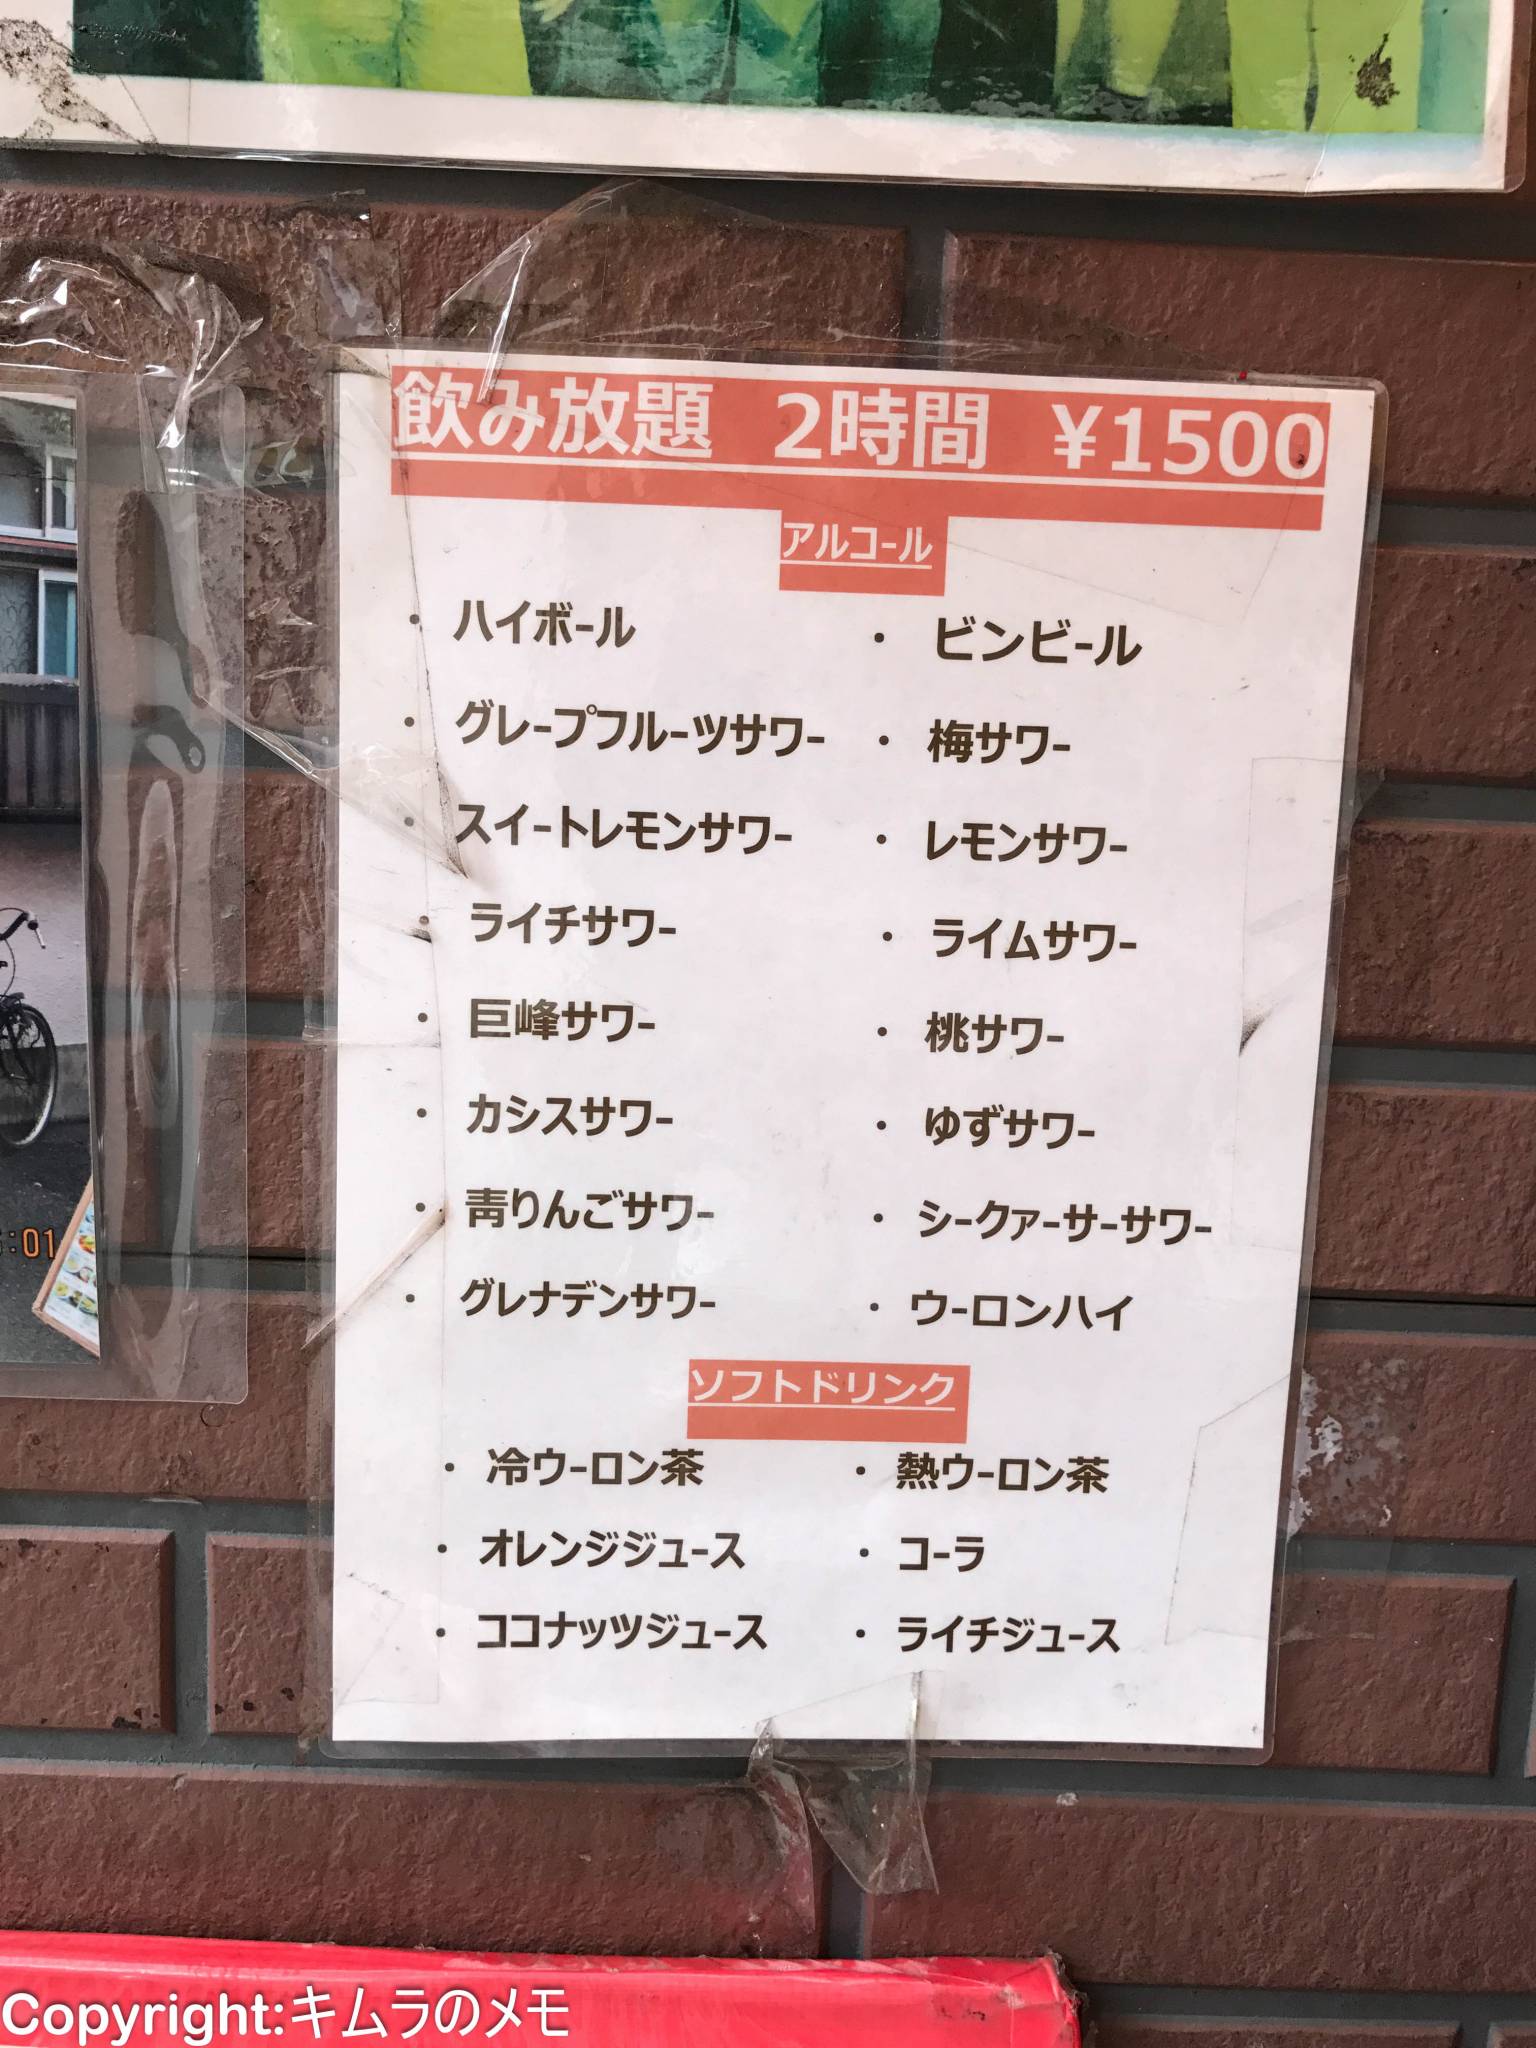 飲み放題 2時間 ¥1500
アルコール
・ ハイボール ・ ビンビール
・ グレープフルーツサワー ・ 梅サワー
・ スイートレモンサワー ・ レモンサワー
・ ライチサワー ・ ライムサワー
・ 巨峰サワー ・ 桃サワー
・ カシスサワー ・ ゆずサワー
・ 青りんごサワー ・ シークァーサーサワー
・ グレナデンサワー ・ ウーロンハイ
ソフトドリンク
・ 冷ウーロン茶 ・ 熱ウーロン茶
・ オレンジジュース ・ コーラ
・ ココナッツジュース ・ ライチジュース
:01
Copyright:キムラのメモ